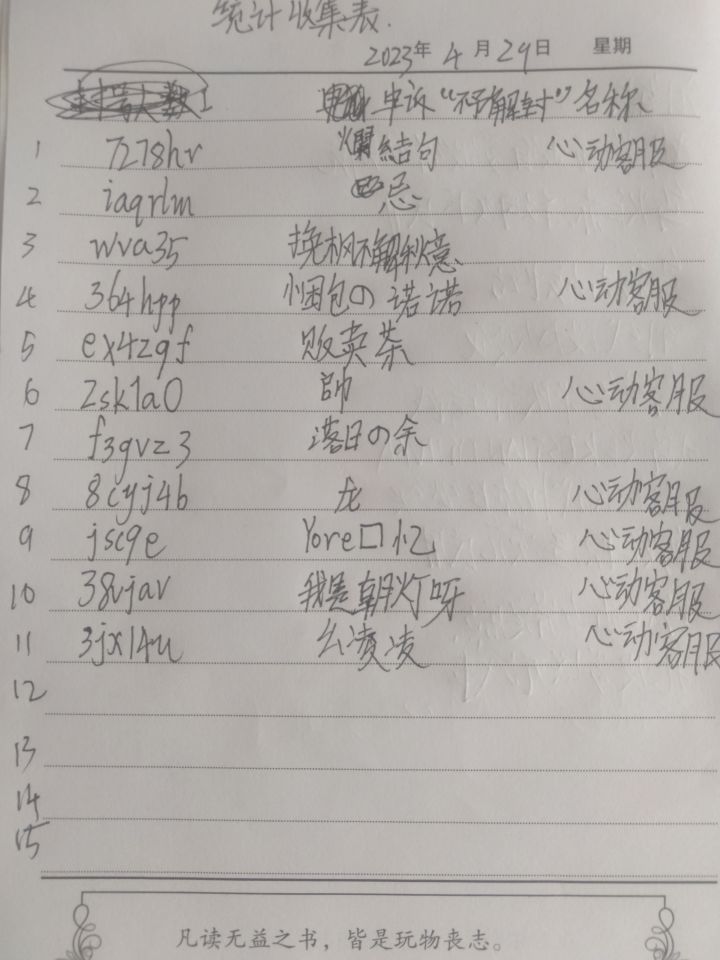 统计收集表.
2023年 4月29日 星期
申诉“不予解封”名称
1 7278hr 爛結句 心动客服
2 iaqrlm 忌
3 wva35 挽枫不解秋意
4 364hpp 悃包の诺诺 心动客服
5 ex4zgf 贩卖茶
6 2sk1a0 帥 心动客服
7 f3gvz3 落日の余
8 8cyj4b 龙 心动客服
9 jsc9e Yore口忆 心动客服
10 38vjav 我是朝灯呀 心动客服
11 3jx14u 幺凌凌 心动客服
12
13
14
15
凡读无益之书，皆是玩物丧志。